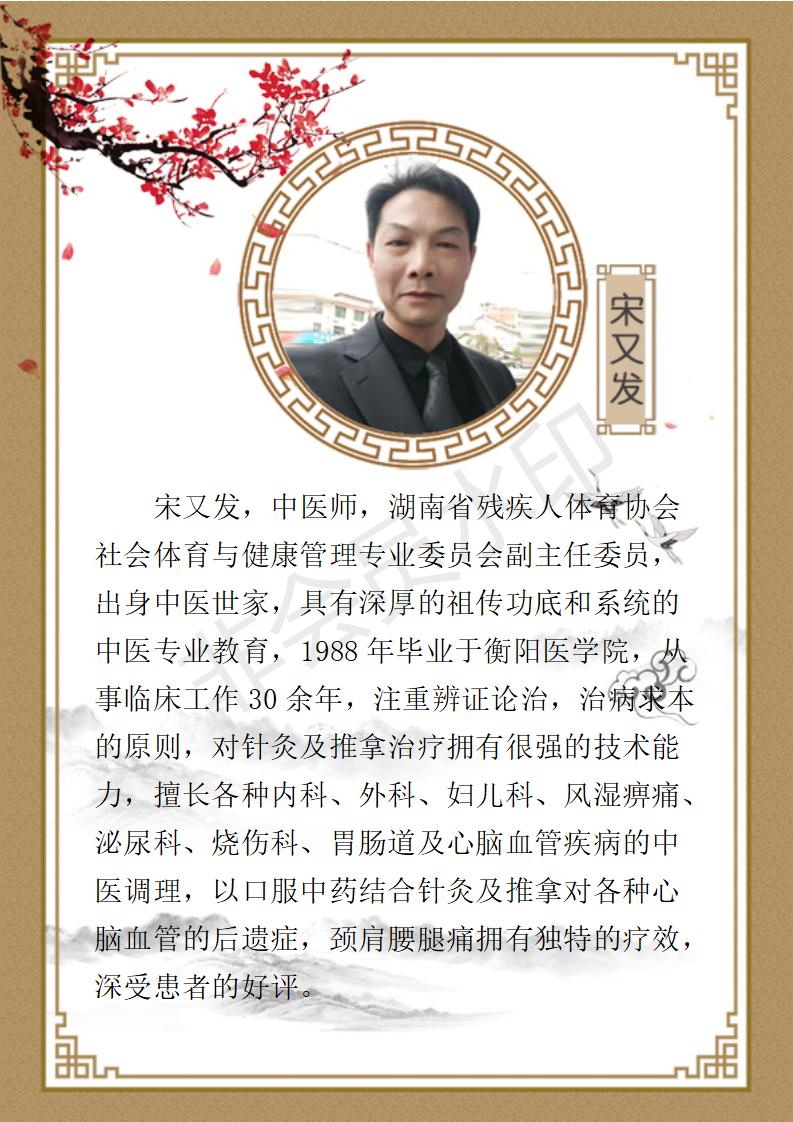 宋又发
宋又发，中医师，湖南省残疾人体育协会
社会体育与健康管理专业委员会副主任委员，
出身中医世家，具有深厚的祖传功底和系统的
中医专业教育，1988 年毕业于衡阳医学院，从
事临床工作 30 余年，注重辨证论治，治病求本
的原则，对针灸及推拿治疗拥有很强的技术能
力，擅长各种内科、外科、妇儿科、风湿痹痛、
泌尿科、烧伤科、胃肠道及心脑血管疾病的中
医调理，以口服中药结合针灸及推拿对各种心
脑血管的后遗症，颈肩腰腿痛拥有独特的疗效，
深受患者的好评。
非会员水印